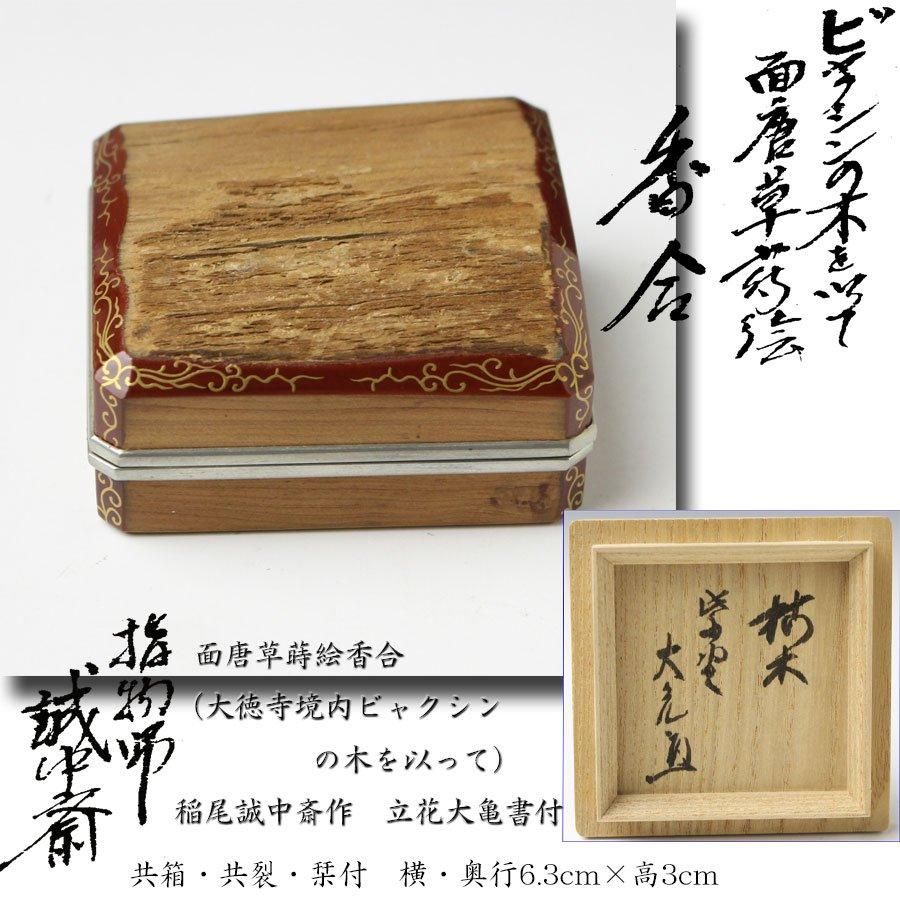 ビャクシンの木を以て
面唐草蒔絵
香合
指物師
誠中斎
面唐草蒔絵香合
(大徳寺境内ビャクシン
の木を以って)
稲尾誠中斎作　立花大亀書付
共箱・共裂・栞付　横・奥行6.3cm×高3cm
紫埜
大亀